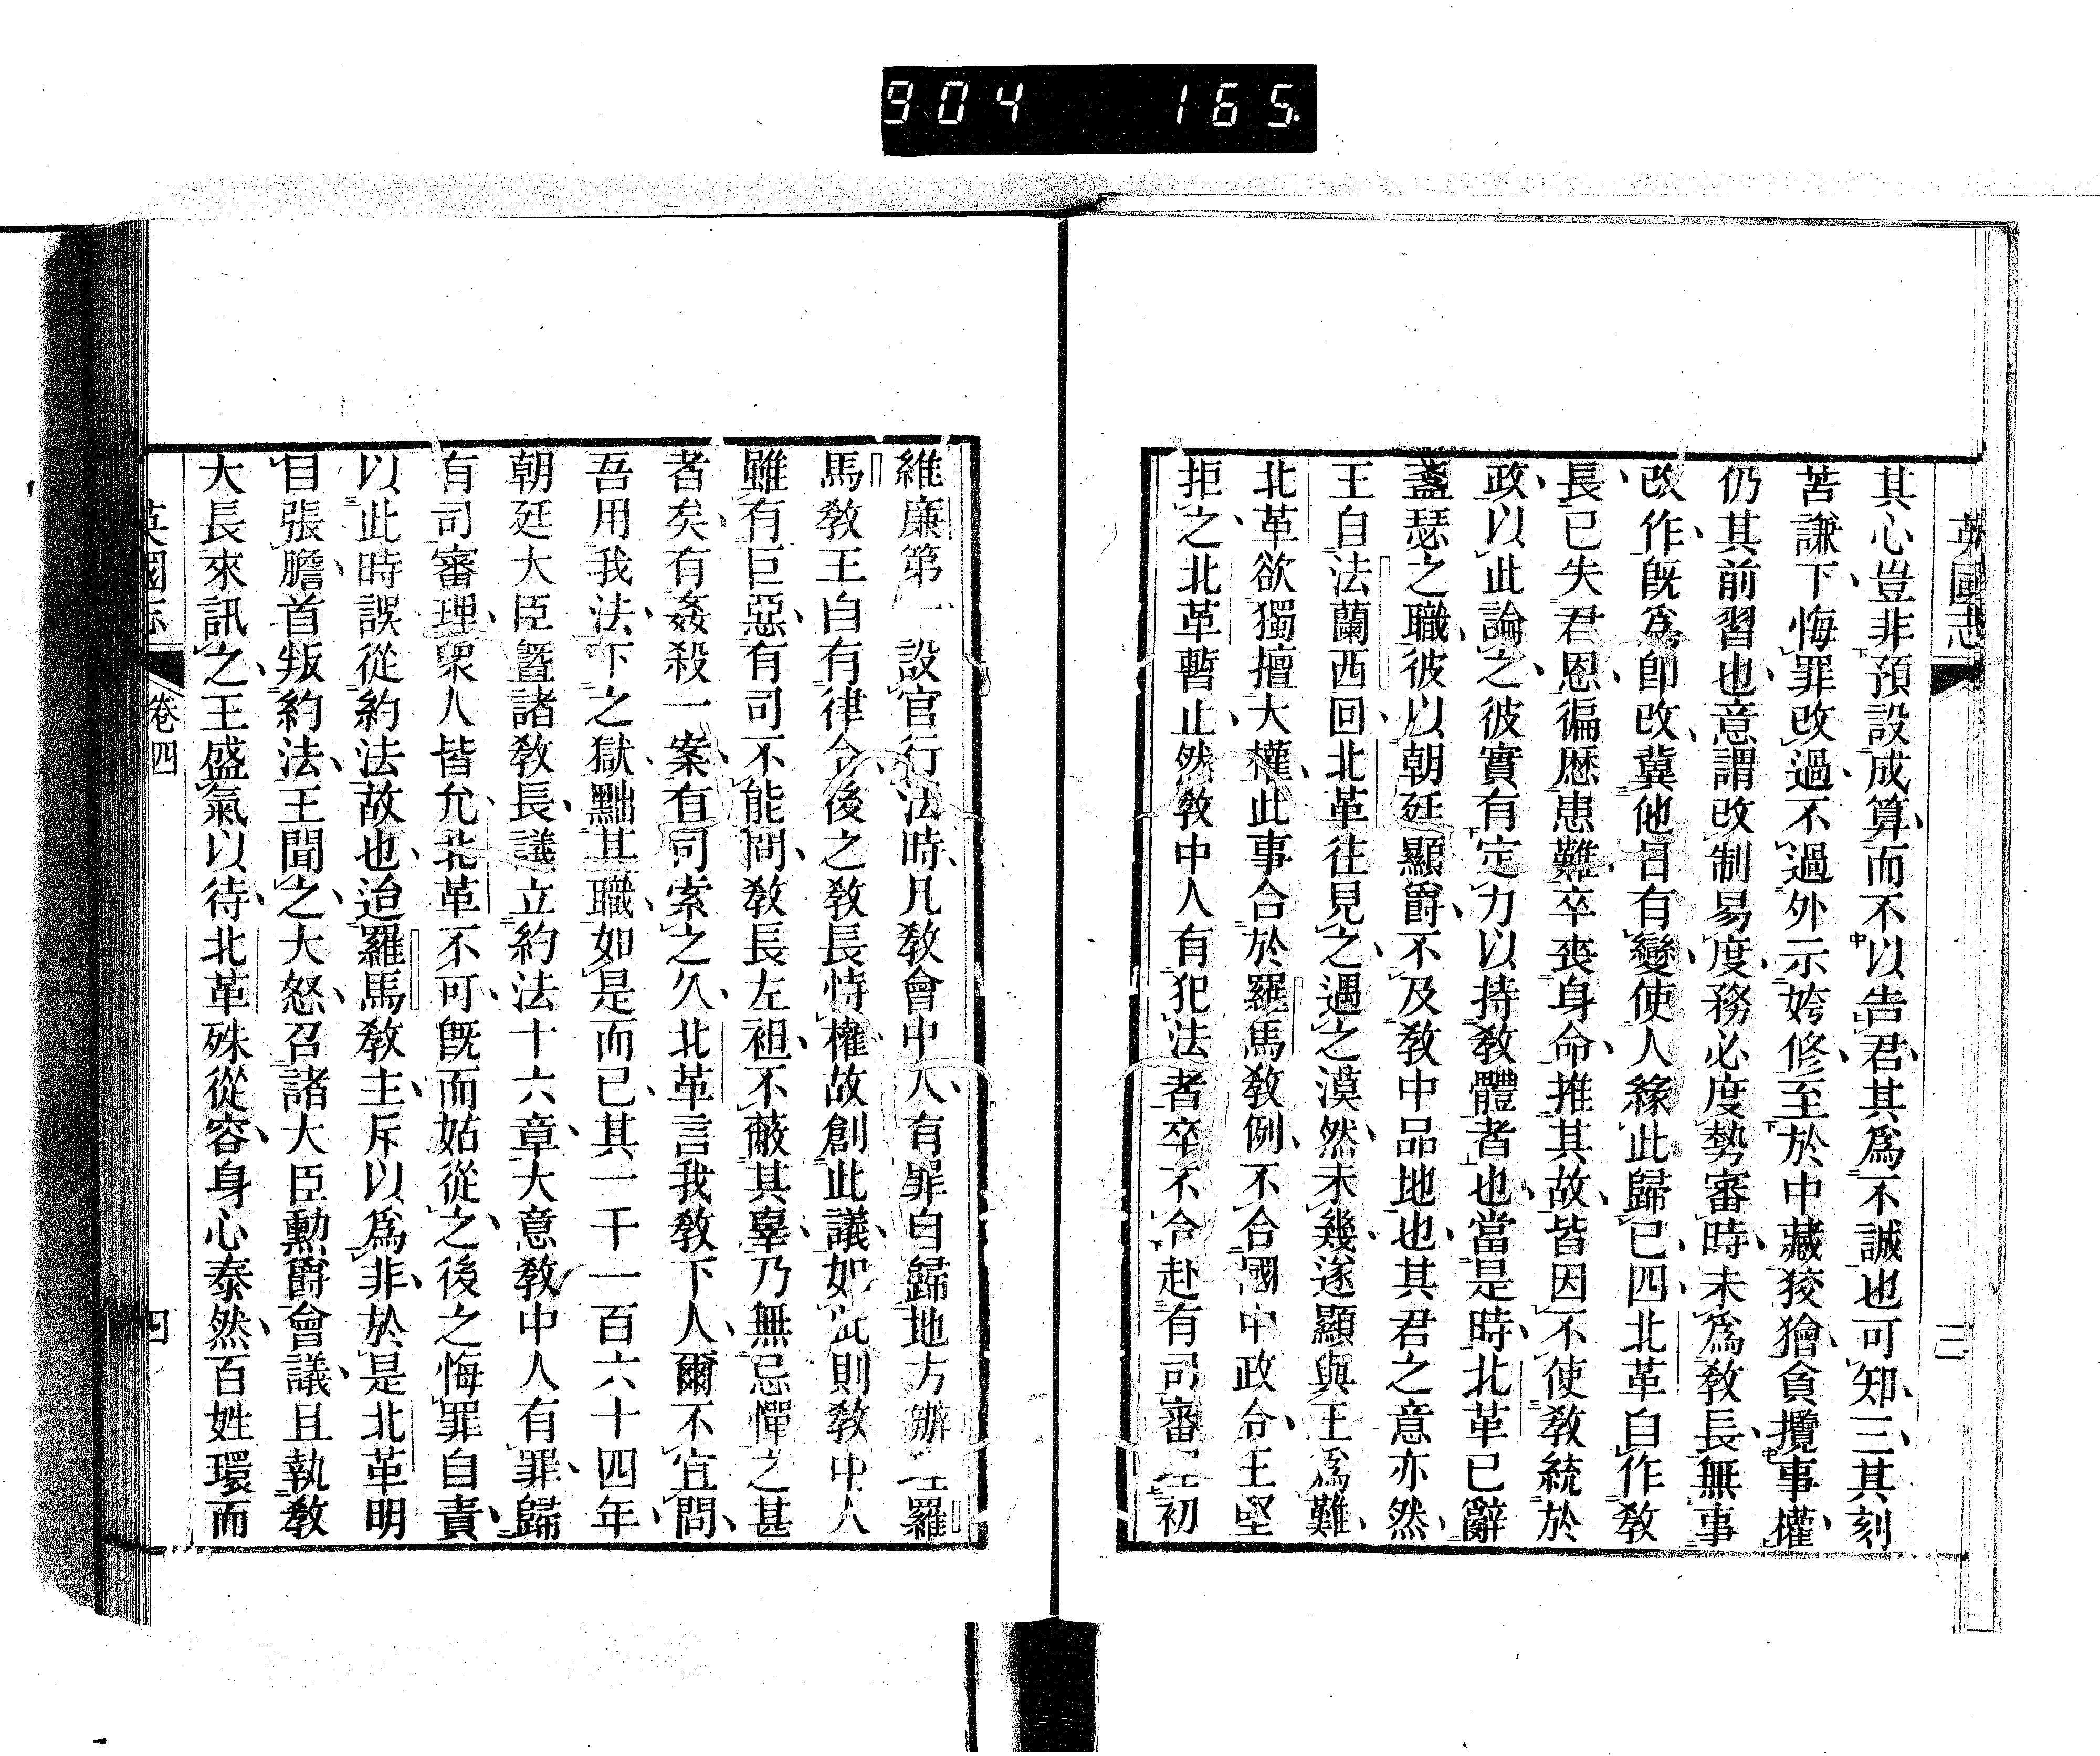 904 165.
英國志
三
其心豈非預設成算而不以告君其爲不誠也可知三其刻
苦謙下悔罪改過不過外示姱修至於中藏狡獪貪攬事權
仍其前習也意謂改制易度務必度勢審時未爲教長無事
改作旣爲卽改冀他日有變使人緣此歸已四北革自作教
長已失君恩徧歷患難卒喪身命推其故皆因不使教統於
政以此論之彼實有定力以持教體者也當是時北革已辭
盞瑟之職彼以朝廷顯爵不及教中品地也其君之意亦然
王自法蘭西回北革往見之遇之漠然未幾遂顯與王爲難
北革欲獨擅大權此事合於羅馬教例不合國中政令王堅
拒之北革暫止然教中人有犯法者卒不令赴有司審理初
維廉第一設官行法時凡教會中人有罪自歸地方辦理羅
馬教王自有律令後之教長恃權故創此議如此則教中人
雖有巨惡有司不能問教長左袒不蔽其辜乃無忌憚之甚
者矣有姦殺一案有司索之久北革言我教下人爾不宜問
吾用我法下之獄黜其職如是而已其一千一百六十四年
朝廷大臣曁諸教長議立約法十六章大意教中人有罪歸
有司審理衆人皆允北革不可旣而姑從之後之悔罪自責
以此時誤從約法故也迨羅馬教主斥以爲非於是北革明
目張膽首叛約法王聞之大怒召諸大臣勳爵會議且執教
大長來訊之王盛氣以待北革殊從容身心泰然百姓環而
英國志
卷四
四